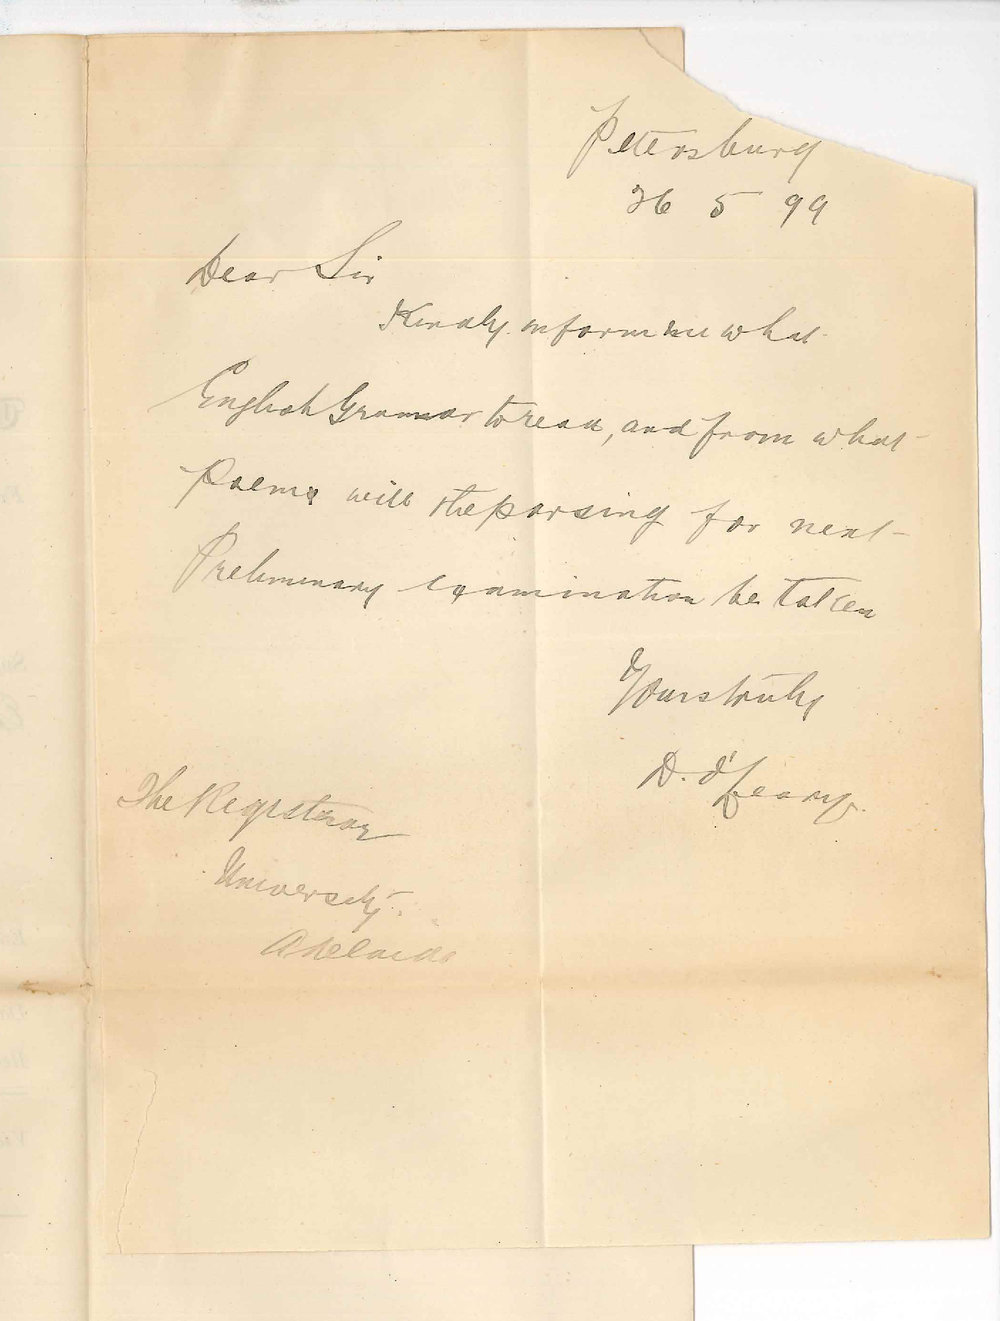 Petersburg
26 5 99
Dear Sir
Kindly inform me what
English Grammar to read, and from what
Poems will the parsing for next
Preliminary examination be taken
Yours truly
D. O'Leary.
The Registrar
University
Adelaide